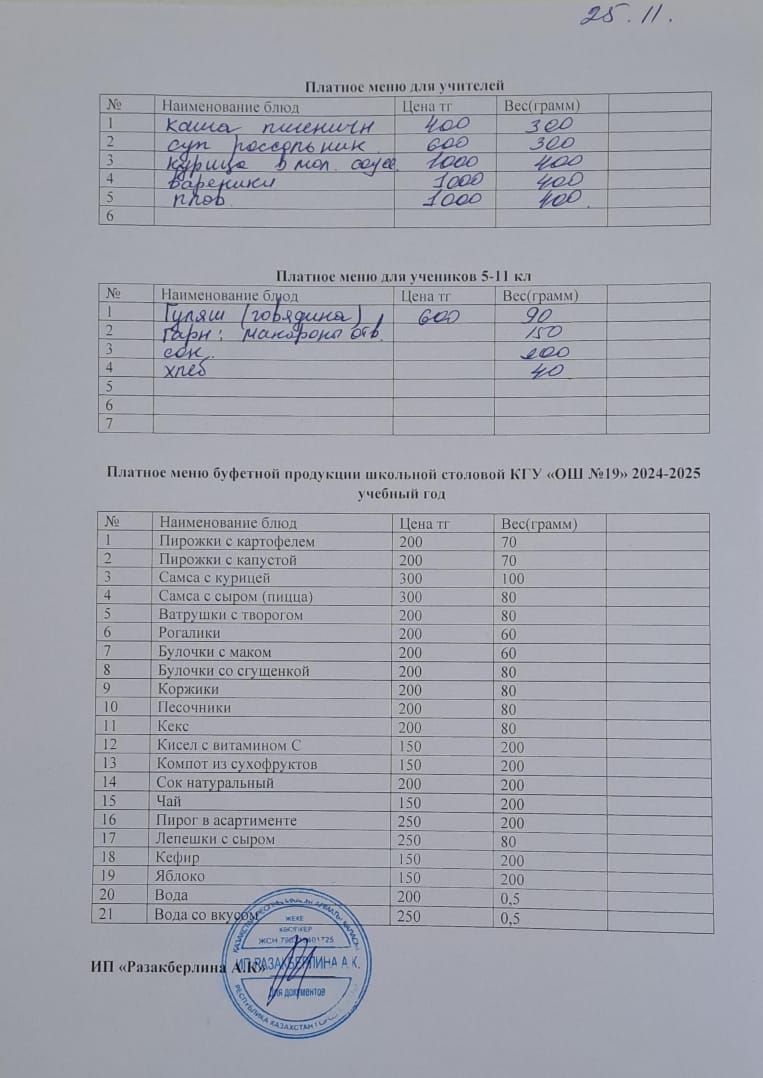 25.11.
Платное меню для учителей
№ Наименование блюд Цена тг Вес(грамм)
1 каша пшеничн 400 300
2 суп рассольник 600 300
3 курица в мол. соусе. 1000 400
4 вареники 1000 400
5 плов 1000 400.
6
Платное меню для учеников 5-11 кл
№ Наименование блюд Цена тг Вес(грамм)
1 Гуляш (говядина) 600 90
2 гарн: макароны отв. 150
3 сок. 200
4 хлеб 40
5
6
7
Платное меню буфетной продукции школьной столовой КГУ «ОШ №19» 2024-2025
учебный год
№ Наименование блюд Цена тг Вес(грамм)
1 Пирожки с картофелем 200 70
2 Пирожки с капустой 200 70
3 Самса с курицей 300 100
4 Самса с сыром (пицца) 300 80
5 Ватрушки с творогом 200 80
6 Рогалики 200 60
7 Булочки с маком 200 60
8 Булочки со сгущенкой 200 80
9 Коржики 200 80
10 Песочники 200 80
11 Кекс 200 80
12 Кисел с витамином С 150 200
13 Компот из сухофруктов 150 200
14 Сок натуральный 200 200
15 Чай 150 200
16 Пирог в асартименте 250 200
17 Лепешки с сыром 250 80
18 Кефир 150 200
19 Яблоко 150 200
20 Вода 200 0,5
21 Вода со вкусом 250 0,5
ЖЕКЕ
КӘСІПКЕР
ЖСН
ИП «Разакберлина А.К»
ИП РАЗАКБЕРЛИНА А.К.
Для документов
РЕСПУБЛИКА КАЗАХСТАН